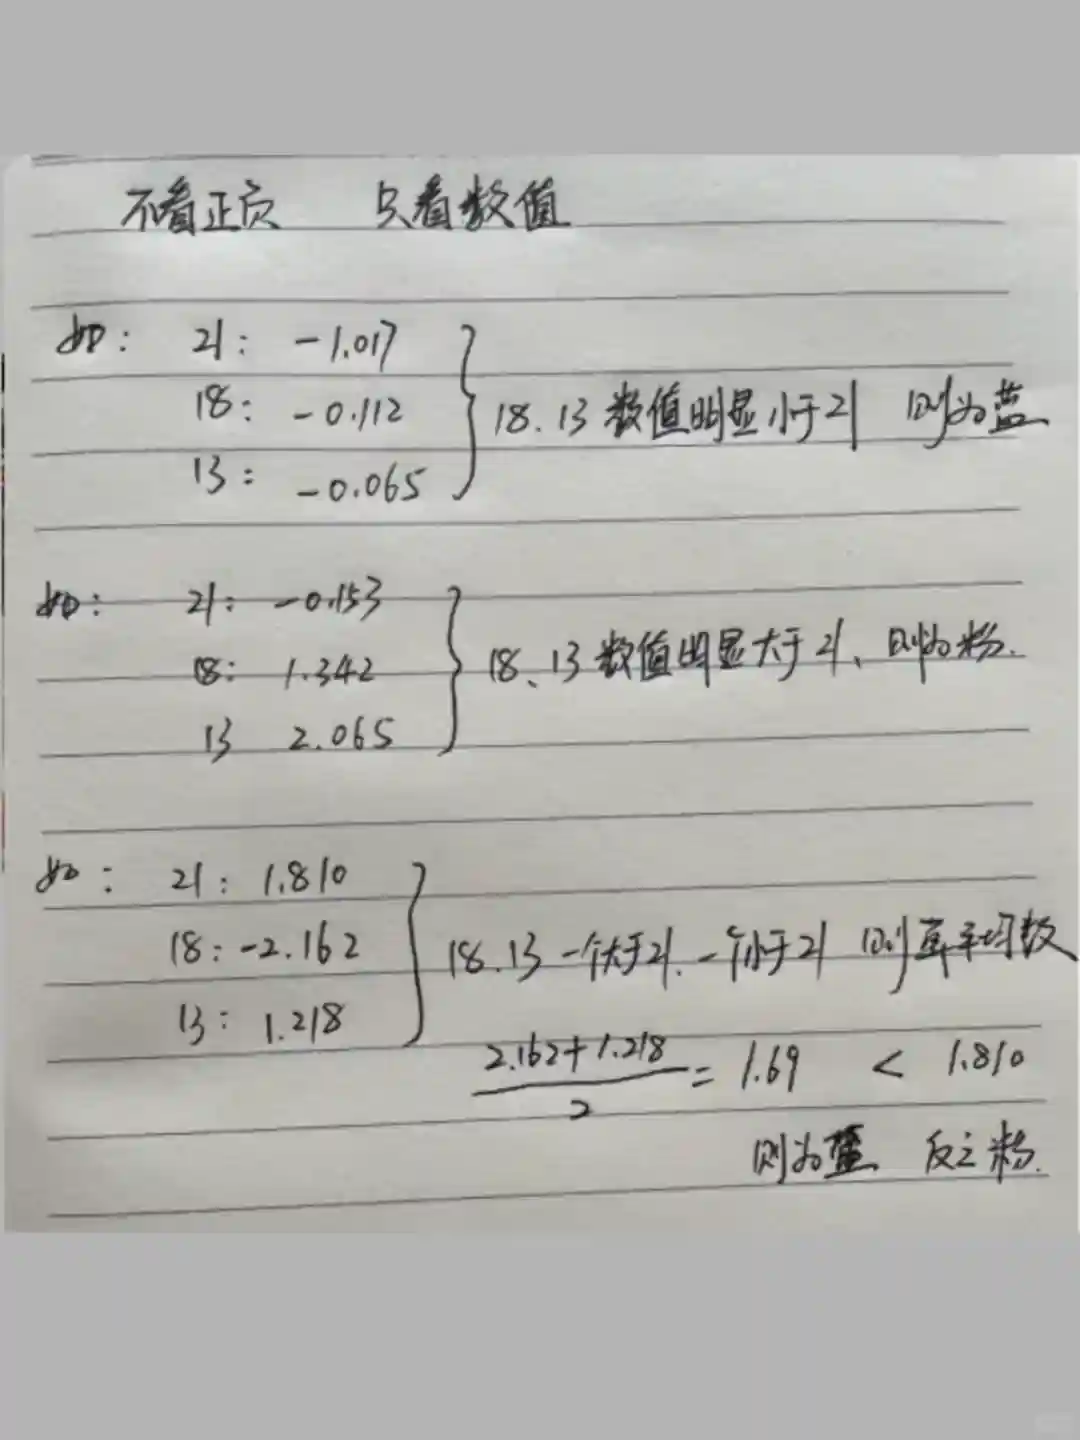 不看正负 只看数值
如: 21: -1.017
18: -0.112
13: -0.065
18.13数值明显小于21 则为蓝
如: 21: -0.153
18: 1.342
13 2.065
18、13数值明显大于21、则为粉.
如: 21: 1.810
18: -2.162
13: 1.218
18.13一个大于21.一个小于21 则算平均数
2.162+1.218
2
= 1.69 < 1.810
则为蓝 反之粉.